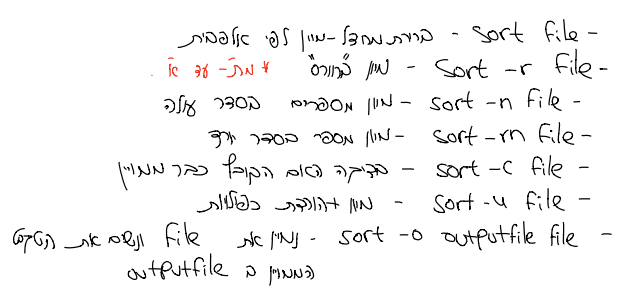 - sort file - ברירת מחדל - מיון לפי אלפבית
- sort -r file - מיון "ברוורס" * מת- עד א
- sort -n file - מיון מספרים בסדר עולה
- sort -rn file - מיון מספר בסדר יורד
- sort -c file - בדיקה האם הקובץ כבר ממויין
- sort -u file - מיון + הורדת כפילויות
- sort -o outputfile file - נמיין את file ונשים את הטקסט
הממויין ב outputfile